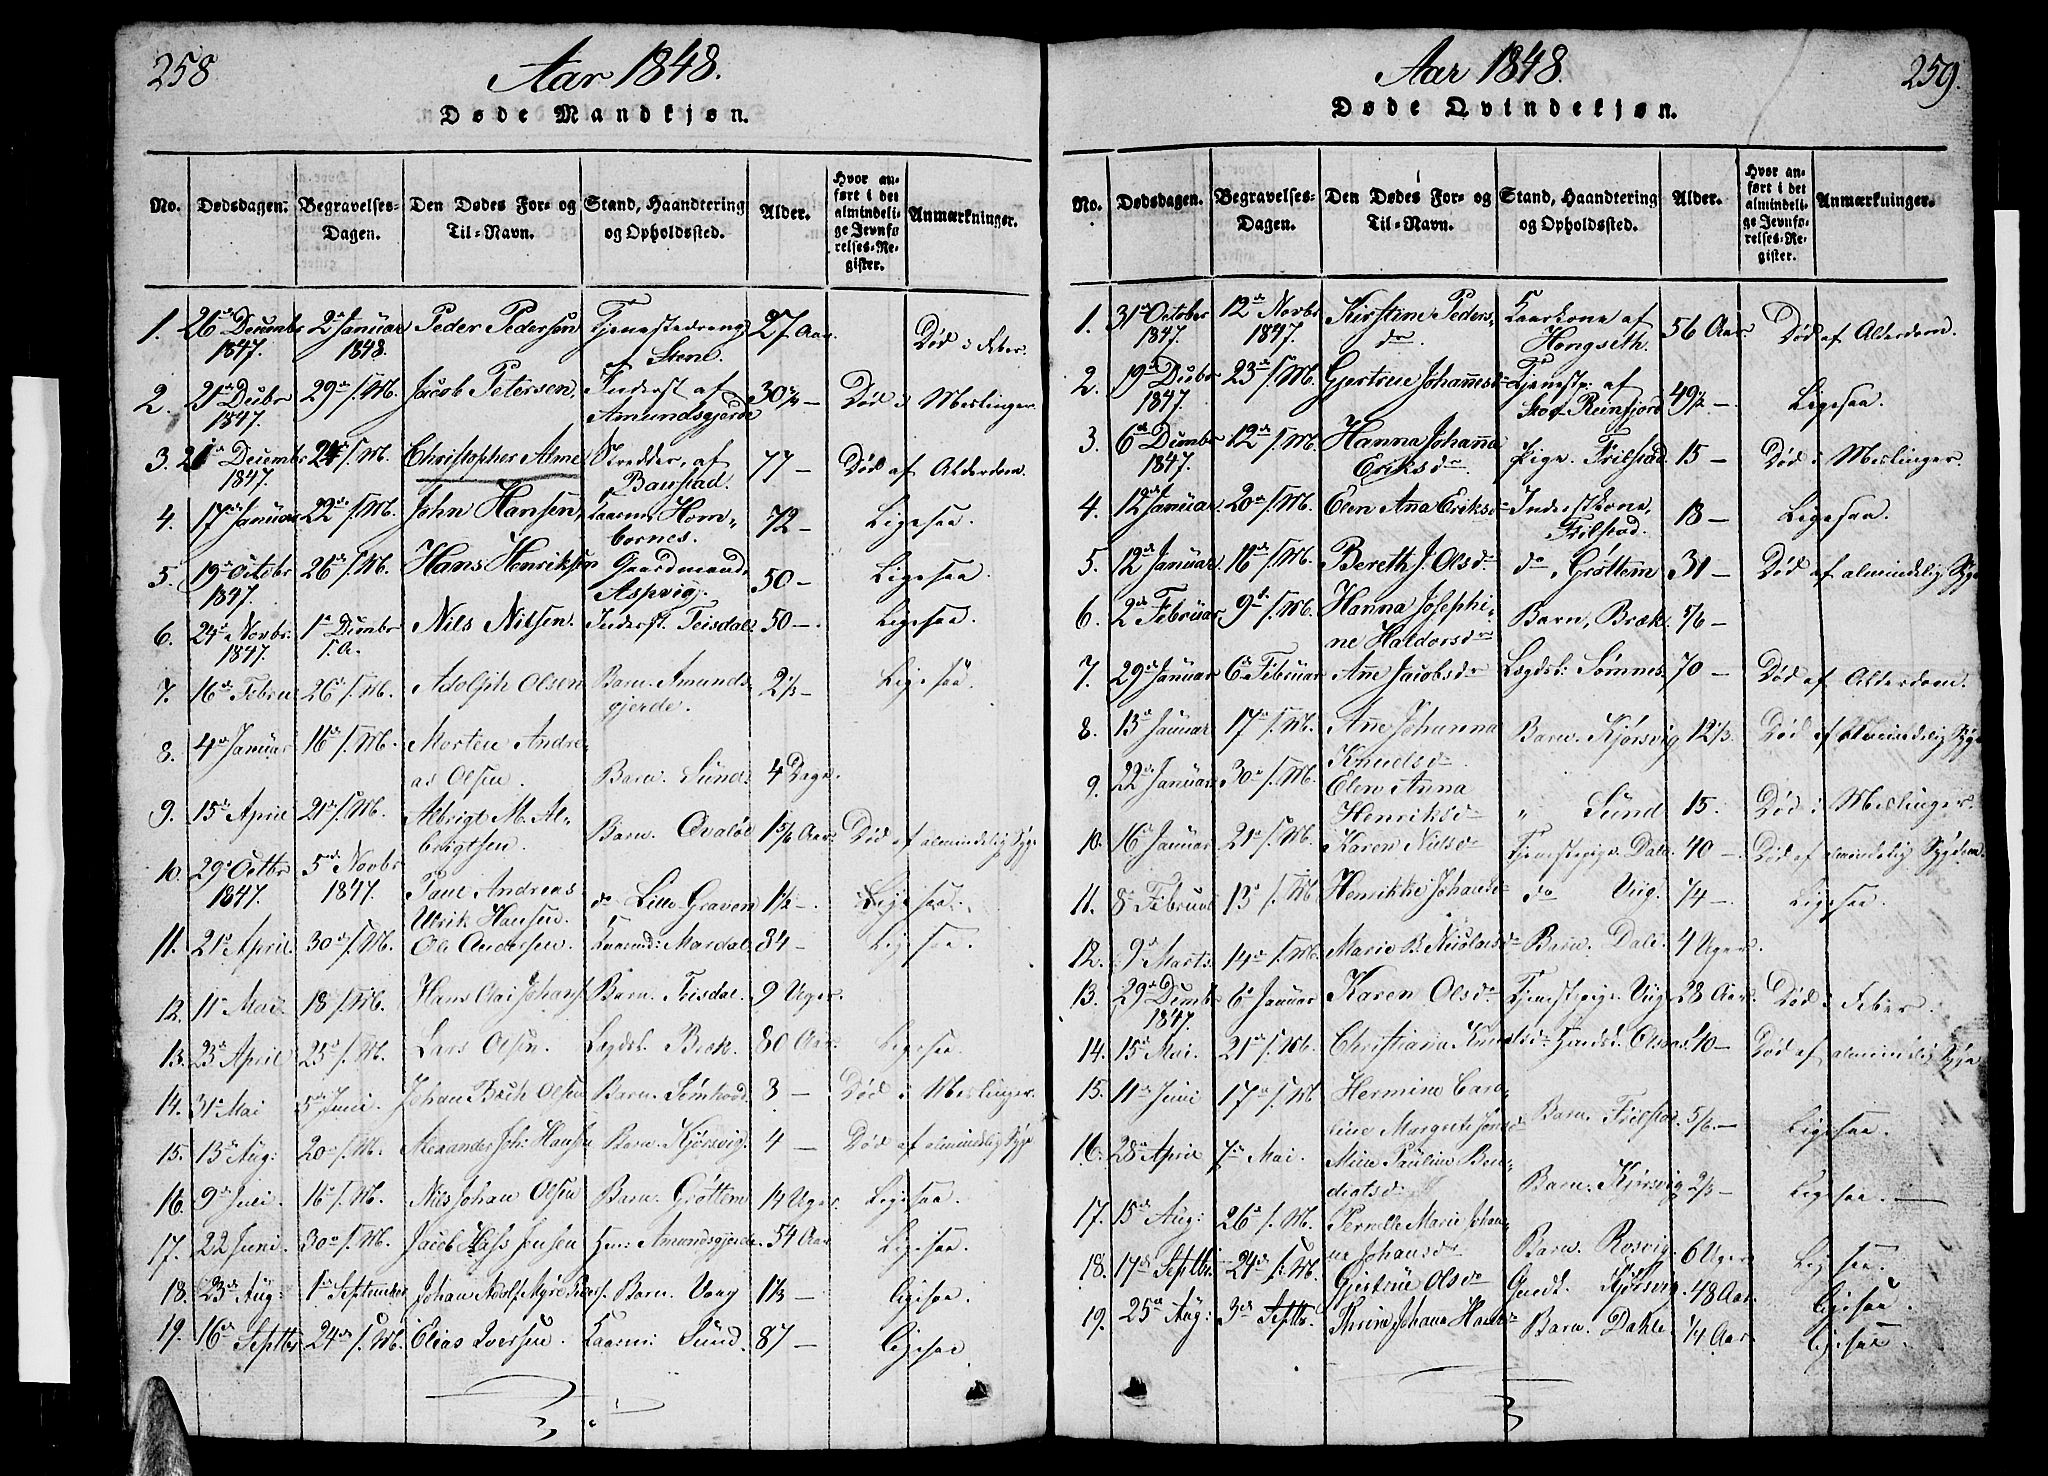 258
Aar 1848.
Døde Mandkjøn.
No. Dødsdagen. Begravelses-Dagen. Den Dødes For- og Til-Navn. Stand, Haandtering og Opholdssted. Alder. Hvor anført i det almindelige Jevnførelses-Register. Anmærkninger.
1. 26de Decembr 1847. 2de Januar 1848. Peder Pedersen Tjenestedreng af Steen. 27 Aar. Død i Feber.
2. 21de Decbr 1847. 29de s. M. Jacob Petersen, Inderst af Amundsgjerde 30 — Død i Meslinger.
3. Decembr 1847. s. M. Christopher Alme Skredder, af 77 — Død af Alderdom.
4. 17de Januar 22de s. M. John Hansen, Hombornes. 72 — Ligesaa.
5. 19de Octobr 1847. 26de s. M. Hans Henriksen Gaardmand Aspvig. 50 — Ligesaa.
6. 24de Novbr. 1847. 1de Decmbr s. A. Nils Nilsen. Inderst. Teisdal. 50 —. Ligesaa.
7. 16de Februar 26de s. M. Adolph Olsen Barn. Amundsgjerde. 2 1/3 — Ligesaa.
8. 4de Januar 16de s. M. Morten Andreas Olsen. Barn. Sund. 4 Dage.
9. 15de April 21de s. M. Albrigt M. Albrigtsen. Barn. 1 5/6 Aar. Død af almindelig Syge
10. 29de Octbr 1847. 5de Novbr 1847. Paul Andreas Ulrik Hansen. do Lille Graven 1 1/2 —. Ligesaa.
11. 21de April. 30de s. M. Ole Andersen. Mardal. 84 — Ligesaa.
12. 11de Mai. 18 s. M. Hans Johans. Barn. Teisdal. 9 Uger.
13. 23de April 25de s. M. Lars Olsen. Lægdsl. Bræk. 80 Aar. Ligesaa.
14. 31de Mai 5de Juni. Johan Olsen Barn. 3 — Død i Meslinger.
15. 13de Aug: 20de s. M. Alexander Joh: Hansen Barn. Kjørsvig. 4 — Død af almindelig Syge
16. 9de Juli. 16de s. M. Nils Johan Olsen Barn. Grøttem 14 Uger. Ligesaa.
17. 22 Juni. 30de s. M. Jacob Jensen Amundsgjerde 54 Aar Ligesaa.
18. 23de Aug: 1de September Johan Adolf Barn. Vaag 1 1/3 — Ligesaa.
19. 16de Septbr 24de s. M. Elias Iversen. Sund. 87 — Ligesaa.
259.
Aar 1848.
Døde Qvindekjøn.
No. Dødsdagen. Begravelses-Dagen. Den Dødes For- og Til-Navn. Stand, Haandtering og Opholdssted. Alder. Hvor anført i det almindelige Jevnførelses-Register. Anmærkninger.
1. 31de October 1847. 12de Novbr 1847. Kirstine Pedersdr. Kaarkone af Hongseth. 56 Aar. Død af Alderdom.
2. 19de Decbr 1847. 23de s. M. Gjertrue Johannesdr Tjenestp: af Reinfjord 49 1/2 — Ligesaa.
3. 6de Decmbr 1847. 12de s. M. Hanna Johanna Eriksdr Pige. Frilstad 15 — Død i Meslinger.
4. 12de Januar. 20de s. M. Elen Ana Eriksdr Inderstkone, Frilstad. 18 — Ligesaa.
5. 12de Januar. 16de s. M. Bereth J. Olsdr do Grøttem 31 — Død af almindelig Syge
6. 2de Februar 9de s. M. Hanna Josephine Haldorsdr Barn, Bræk. 5/6 —
7. 29de Januar 6de Februar Ane Jacobsdr Lægdsl: Sømnes, 70 — Død af Alderdom.
8. 13de Januar 17de s. M. Ane Johanna Knudsdr Barn. Kjørsvig 12 1/3. Død af Almindelig Syge
9. 22de Januar 30de s. M. Elen Anna Henriksdr " Sund 15. Død i Meslinger.
10. 16de Januar 21de s. M. Karen Nilsdr Tjenestepige. Dale. 40 —. Død af almindelig Sygdom.
11. 8de Februar 13de s. M. Henrikke Johansdr do Viig. 74 —. Ligesaa.
12. 9de Marts. 14de s. M. Marie B. Nicolaisdr Barn. Dale. 4 Uger.
13. 29de Decmbr 1847. 6de Januar Karen Olsdr Tjenestepige. Viig 28 Aar. Død i Feber.
14. 15de Mai. 21de s. M. Christiana Knudsdr 40 — Død af almindelig Syge
15. 11de Juni 17de s. M. Hermine Caroline Margrete Barn. Frilstad. 5/6 — Ligesaa.
16. 28de April 7de Mai. Mine Pauline Bendigtsdr Barn. Kjørsvig 2/3 — Ligesaa. —
17. 15de Aug: 26de s. M. Pernelle Marie Johanne Johansdr Barn. Rosvig. 6 Uger Ligesaa.
18. 17de Septbr. 24de s. M. Gjertrue Olsdr Kjørsvig. 48 Aar. Ligesaa.
19. 25de Aug: 3de Septbr. Thrine Johana Barn. Dahle. 1/4 Aar. Ligesaa.